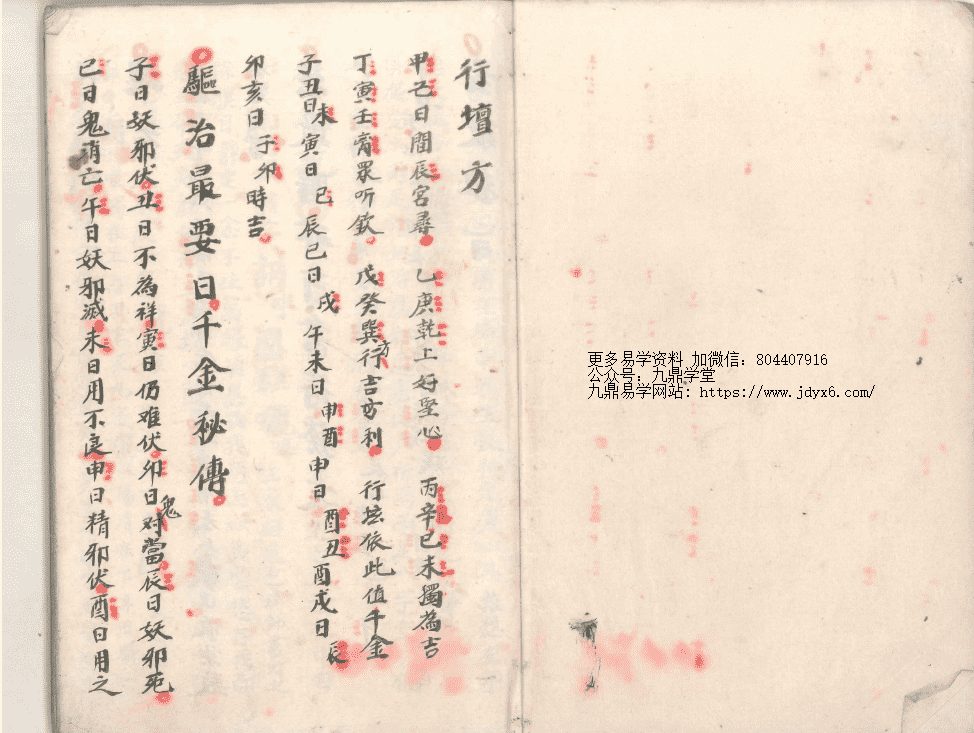 行壇方
甲己日間辰宮尋 乙庚乾上好堅心 丙辛巳未獨為吉
丁寅壬亥眾听欽 戊癸巽方行吉方利 行坛依此值千金
子丑日未 寅日巳 辰巳日戌 午未日申酉 申日酉丑 酉戌日辰
卯亥日子卯時吉
驅治最要日千金秘傳
子日妖邪伏丑日不為祥寅日仍难伏卯日鬼对當辰日妖邪死
巳日鬼消亡午日妖邪滅未日用不良申日精邪伏酉日用之
更多易学资料 加微信：804407916
公众号：九鼎学堂
九鼎易学网站：https://www.jdyx6.com/